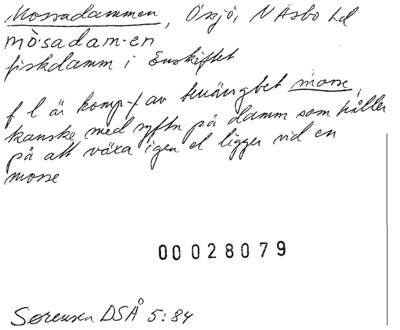 Mossadammen, Ö.sjö, N Åsbo hd
mòsadam·en
fiskdamm i Enskiftet
f l är komp-f av terrängbet mosse,
kanske med syftn på damm som håller
på att växa igen el ligger vid en
mosse
00028079
Sørensen DSÅ 5:84